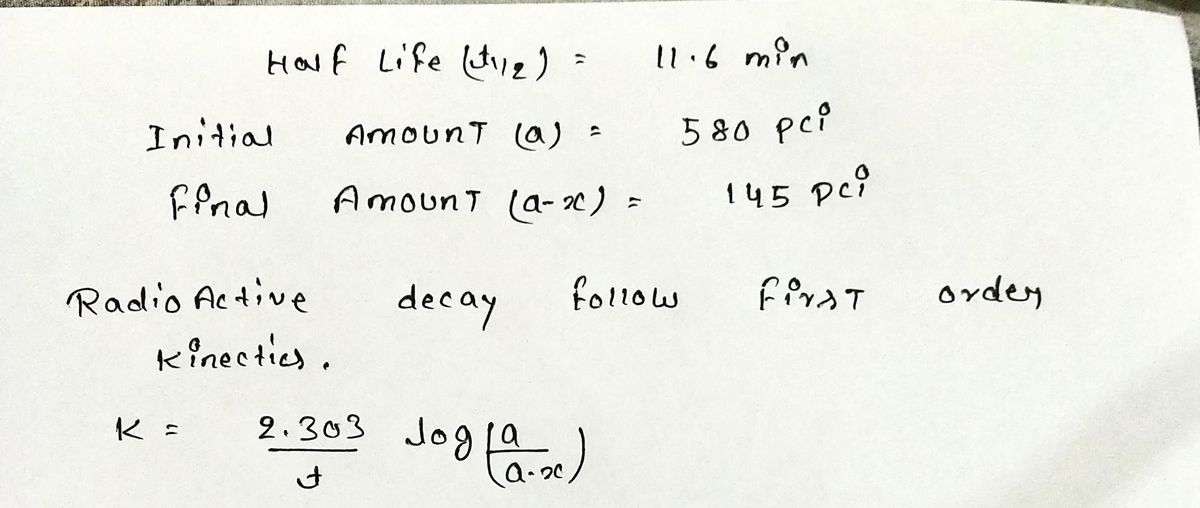 Half Life (t1/2) = 11.6 min
Initial Amount (a) = 580 pci
Final Amount (a-x) = 145 pci
Radio Active decay follow first order
kinectics.
K = 2.303/t log(a/a-x)